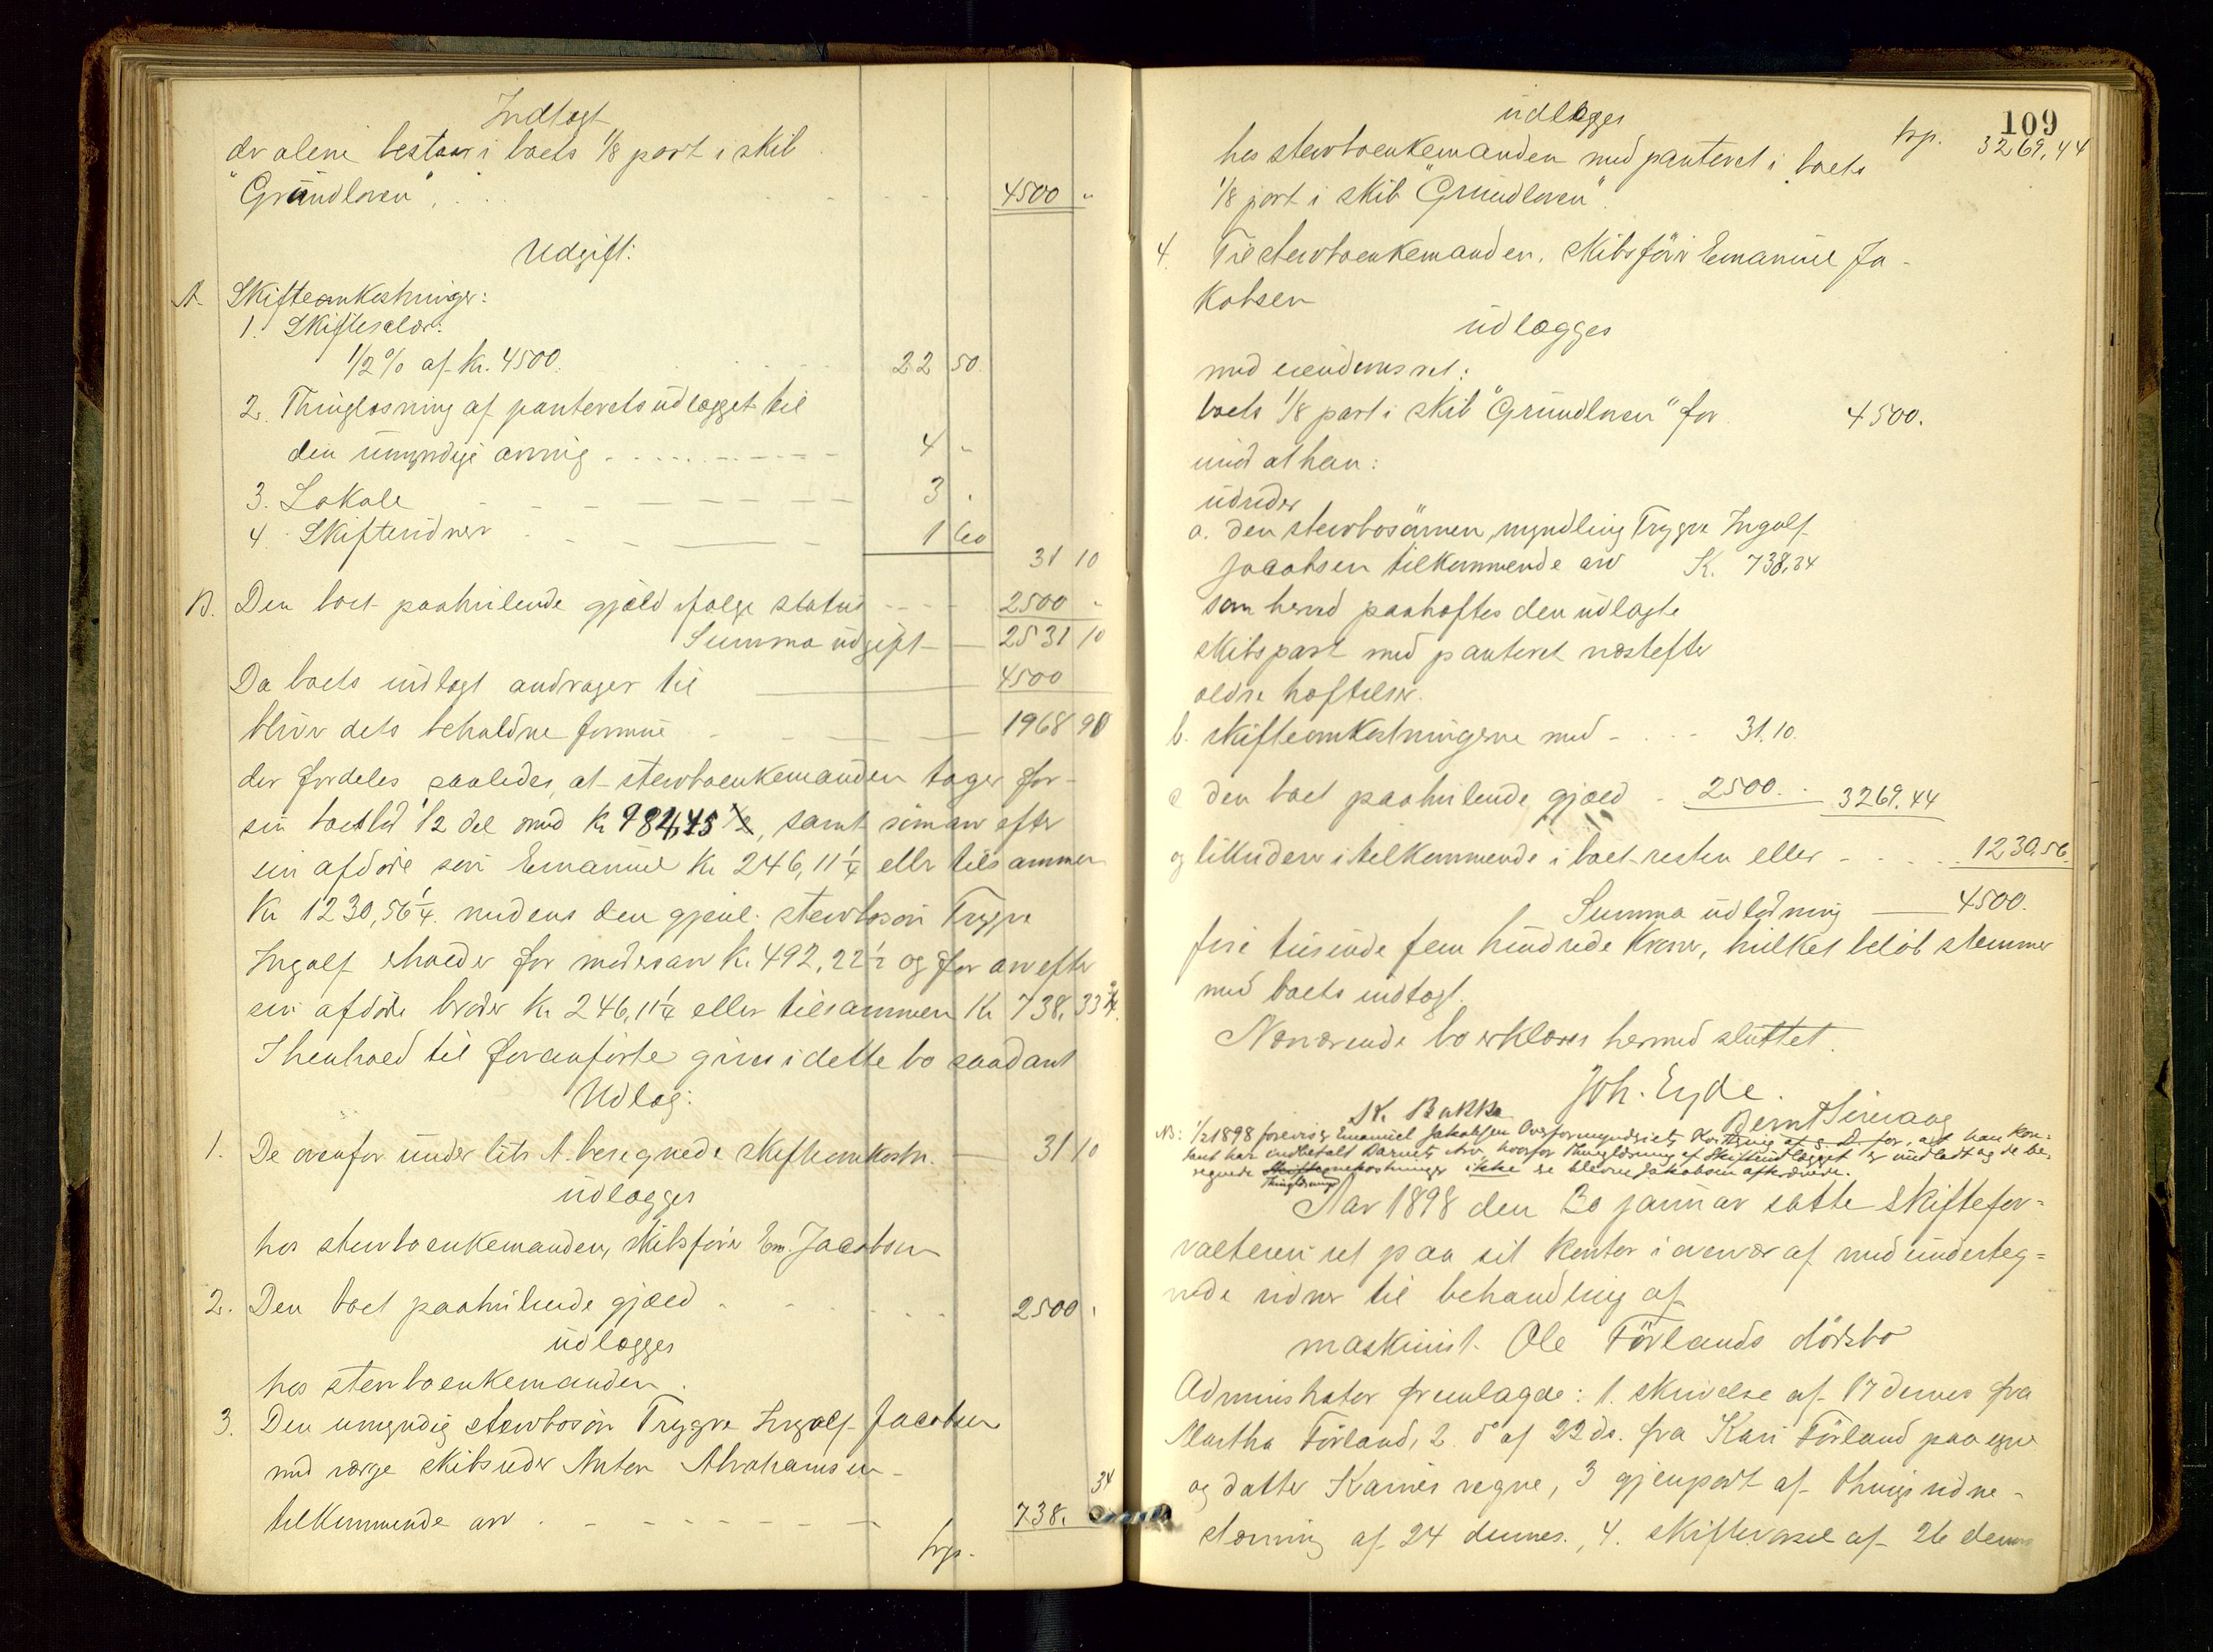 Indtægt
der alene bestaar i boets 1/8 part i skib
"Grundloven", . . . 4500 "
Udgift:
A. Skifteomkostninger:
1. Skiftesalær:
1/2 % af Kr. 4500. 22 50.
2. Thinglæsning af panteretsudlægget til
den umyndige arving 4 "
3. Lokale 3 "
4. Skiftevidner 1 60
31 10
B. Den boet paahvilende gjæld ifølge status 2500 "
Summa udgift 2531 10
Da boets indtægt andrager til 4500
bliver dets beholdne formue 1968 90
der fordeles saaledes, at stervboenkemanden tager for
sin boeslod 1/2 del med Kr 984,45, samt som arv efter
sin afdøde søn Emanuel Kr 246,11 1/4 eller tilsammen
Kr 1230,56 1/4. medens den gjenl. stervbosøn Trygve
Ingolf erholder for mødrearv Kr. 492,22 1/2 og for arv efter
sin afdøde broder Kr 246,11 1/4 eller tilsammen Kr 738,33 3/4.
I henhold til foranførte gives i dette bo saadant
Udlæg:
1. De ovenfor under litr A. beregnede skifteomkostn. 31 10
udlægges
hos stervboenkemanden, skibsfører Em. Jacobsen
2. Den boet paahvilende gjæld 2500 "
udlægges
hos stervboenkemanden.
3. Den umyndig stervbosøn Trygve Ingolf Jacobsen
med værge skibsreder Anton Abrahamsen
tilkommende arv 738. 34
trsp.
109
udlægges
trsp. 3269,44
hos stervboenkemanden med panteret i boets
1/8 part i skib "Grundloven".
4. Til stervboenkemanden, skibsfører Emanuel Ja-
kobsen
udlægges
med eiendomsret:
boets 1/8 part i skib "Grundloven" for 4500.
mod at han:
udreder
a. den stervbosønnen, myndling Trygve Ingolf
Jacobsen tilkommende arv K. 738,34
som herved paaheftes den udlagte
skibspart med panteret næstefter
ældre heftelser.
b. skifteomkostningerne med 31.10.
c den boet paahvilende gjæld 2500. 3269,44
og likviderer i tilkommende i boet resten eller 1230.56.
Summa udlodning 4500.
fire tusinde fem hundrede kroner, hvilket beløb stemmer
med boets indtægt.
Nærværende bo erklæres hermed sluttet.
Joh. Eyde.
K. Bakka Bernt Sirevaag
NB: 1/2 1898 foreviser Emanuel Jakobsen Overformynderiets Kvittering af s. D. for, at han kon-
tant har indbetalt Barnets Arv, hvorfor Thinglæsning af Skifteudlægget er undladt og de be-
regnede Skifteomkostninger Thinglæsnings ikke er blevne Jakobsen afkrævede.
Aar 1898 den 30 januar satte skiftefor-
valteren ret paa sit kontor i overvær af medunderteg-
nede vidner til behandling af
maskinist Ole Førlands dødsbo
Administrator fremlagde: 1. skrivelse af 17 dennes fra
Martha Førland, 2. do af 22 ds. fra Kari Førland paa egne
og datter Karines vegne, 3 gjenpart af thingsvidne-
stævning af 24 dennes., 4. skiftevarsel af 26 dennes